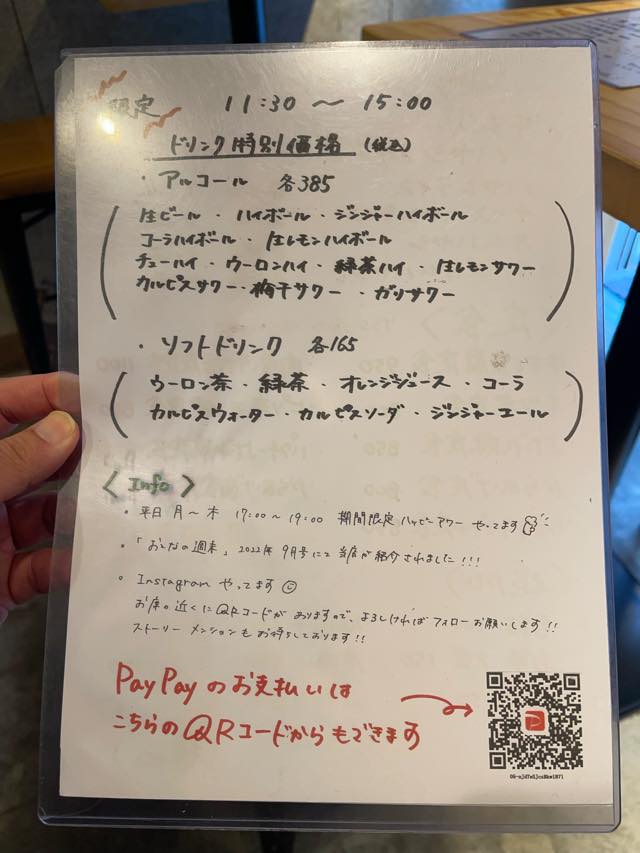 限定
11:30 〜 15:00
ドリンク特別価格 (税込)
・アルコール 各385
生ビール・ハイボール・ジンジャーハイボール
コーラハイボール・生レモンハイボール
チューハイ・ウーロンハイ・緑茶ハイ・生レモンサワー
カルピスサワー・梅干サワー・ガリサワー
・ソフトドリンク 各165
ウーロン茶・緑茶・オレンジジュース・コーラ
カルピスウォーター・カルピスソーダ・ジンジャーエール
<Info>
・平日 月〜木 17:00〜19:00 期間限定 ハッピーアワー やってます
・「おとなの週末」2022年 9月号にて当店が紹介されました!!!
・Instagram やってます
お席の近くにQRコードがありますので、よろしければフォローお願いします!!
ストーリーメンションもお待ちしております!!
PayPayのお支払いは
こちらのQRコードからもできます